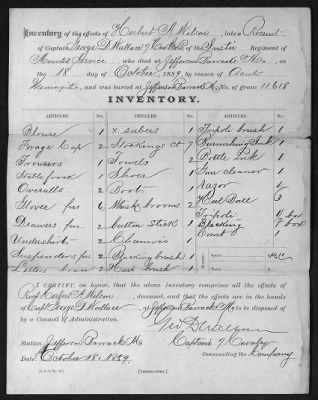 Inventory of the effects of Herbert A. Wilson, late a Recruit
of Captain George D. Wallace, 7 Cav Co. B of the Inst'n Regiment of
Mounted Service, who died at Jefferson Barracks Mo., on
the 18 day of October, 1889, by reason of Acute
and was buried at Jefferson Barracks Mo. No. of grave 11618
INVENTORY.
ARTICLES. No. ARTICLES. No. ARTICLES. No.
Blouse 1 sabers 1 Tripoli brush 1
Forage Cap 2 Stockings 7 Ink 1
Trousers 1 Towels 2 Bottle ink 1
Stable frock 1 Shoes 1 Gun cleaner 1
Overalls 2 Boots 1 Razor 1
Gloves prs 6 Whisk brooms 2 Heel Ball
Drawers prs 2 button stick 1 Tripoli
Undershirts 2 Chamois 1 Blacking box
Suspenders prs 2 brush 1 Comb 1
2 Hair brush 1
I CERTIFY, on honor, that the above inventory comprises all the effects of
Rect Herbert A. Wilson, deceased, and that the effects are in the hands
of Capt George D. Wallace, at Jefferson Barracks Mo. to be disposed of
by a Council of Administration.
Geo D Wallace
Station: Jefferson Barracks Mo Captain 7 Cavalry
Date: October 18, 1889. Commanding the Company